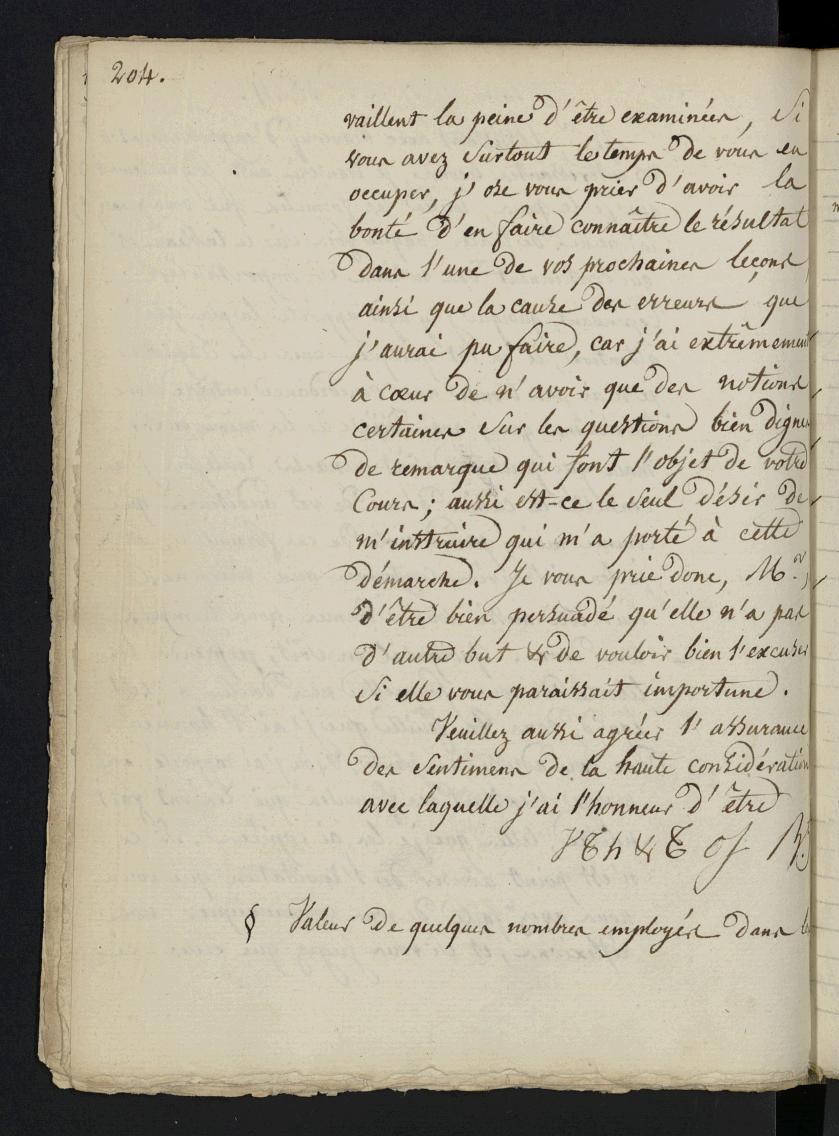 204.
vaillent la peine d'être examinées, Si
vous avez surtout le temps de vous en
occuper, j'ose vous prier d'avoir la
bonté d'en faire connaître le résultat
dans l'une de vos prochaines leçons
ainsi que la cause des erreurs que
j'aurai pu faire, car j'ai extrêmement
à cœur de n'avoir que des notions
certaines sur les questions bien dignes
de remarque qui font l'objet de votre
Cours; aussi est-ce le seul désir de
m'instruire qui m'a porté à cette
démarche. Je vous prie donc, Mr,
d'être bien persuadé qu'elle n'a pas
d'autre but & de vouloir bien l'excuser
si elle vous paraissait importune.
Veuillez aussi agréer l'assurance
des sentimens de la haute considération
avec laquelle j'ai l'honneur d'être
§ Valeur de quelques nombres employés dans